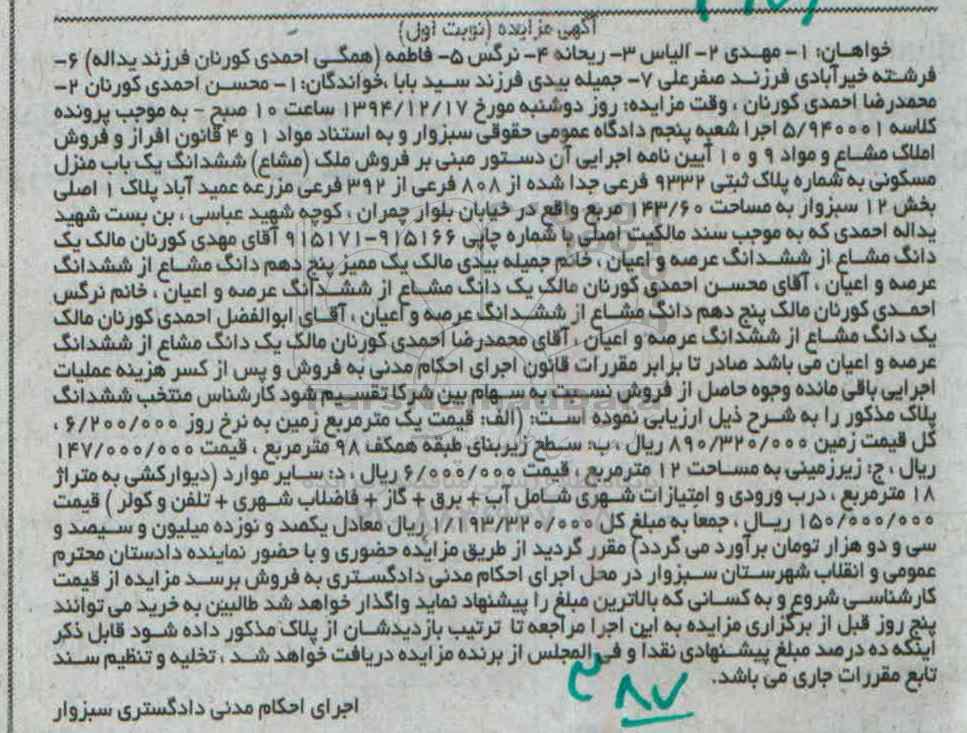 آگهی مزایده (نوبت اول)
خواهان: ۱- مهدی ۲- الیاس ۳- ریحانه ۴- نرگس ۵- فاطمه (همگی احمدی کورنان فرزند یداله) ۶-
فرشته خیرآبادی فرزند صفرعلی ۷- جمیله بیدی فرزند سید بابا ،خواندگان: ۱- محسن احمدی کورنان ۲-
محمدرضا احمدی کورنان ، وقت مزایده: روز دوشنبه مورخ ۱۳۹۴/۱۲/۱۷ ساعت ۱۰ صبح - به موجب پرونده
کلاسه ۵/۹۴۰۰۰۱ اجرا شعبه پنجم دادگاه عمومی حقوقی سبزوار و به استناد مواد ۱ و ۴ قانون افراز و فروش
املاک مشاع و مواد ۹ و ۱۰ آیین نامه اجرایی آن دستور مبنی بر فروش ملک (مشاع) ششدانگ یک باب منزل
مسکونی به شماره پلاک ثبتی ۹۳۳۲ فرعی جدا شده از ۸۰۸ فرعی از ۳۹۲ فرعی مزرعه عمید آباد پلاک ۱ اصلی
بخش ۱۲ سبزوار به مساحت ۱۴۳/۶۰ مربع واقع در خیابان بلوار چمران ، کوچه شهید عباسی ، بن بست شهید
یداله احمدی که به موجب سند مالکیت اصلی با شماره چاپی ۹۱۵۱۶۶-۹۱۵۱۷۱ آقای مهدی کورنان مالک یک
دانگ مشاع از ششدانگ عرصه و اعیان ، خانم جمیله بیدی مالک یک ممیز پنج دهم دانگ مشاع از ششدانگ
عرصه و اعیان ، آقای محسن احمدی کورنان مالک یک دانگ مشاع از ششدانگ عرصه و اعیان ، خانم نرگس
احمدی کورنان مالک پنج دهم دانگ مشاع از ششدانگ عرصه و اعیان ، آقای ابوالفضل احمدی کورنان مالک
یک دانگ مشاع از ششدانگ عرصه و اعیان ، آقای محمدرضا احمدی کورنان مالک یک دانگ مشاع از ششدانگ
عرصه و اعیان می باشد صادر تا برابر مقررات قانون اجرای احکام مدنی به فروش و پس از کسر هزینه عملیات
اجرایی باقی مانده وجوه حاصل از فروش نسبت به سهام بین شرکا تقسیم شود کارشناس منتخب ششدانگ
پلاک مذکور را به شرح ذیل ارزیابی نموده است: (الف: قیمت یک مترمربع زمین به نرخ روز ۶/۲۰۰/۰۰۰ ،
کل قیمت زمین ۸۹۰/۳۲۰/۰۰۰ ریال ، ب: سطح زیربنای طبقه همکف ۹۸ مترمربع ، قیمت ۱۴۷/۰۰۰/۰۰۰
ریال ، ج: زیرزمینی به مساحت ۱۲ مترمربع ، قیمت ۶/۰۰۰/۰۰۰ ریال ، د: سایر موارد (دیوارکشی به متراژ
۱۸ مترمربع ، درب ورودی و امتیازات شهری شامل آب + برق + گاز + فاضلاب شهری + تلفن و کولر ) قیمت
۱۵۰/۰۰۰/۰۰۰ ریال ، جمعا به مبلغ کل ۱/۱۹۳/۳۲۰/۰۰۰ ریال معادل یکصد و نوزده میلیون و سیصد و
سی و دو هزار تومان برآورد می گردد) مقرر گردید از طریق مزایده حضوری و با حضور نماینده دادستان محترم
عمومی و انقلاب شهرستان سبزوار در محل اجرای احکام مدنی دادگستری به فروش برسد مزایده از قیمت
کارشناسی شروع و به کسانی که بالاترین مبلغ را پیشنهاد نماید واگذار خواهد شد طالبین به خرید می توانند
پنج روز قبل از برگزاری مزایده به این اجرا مراجعه تا ترتیب بازدیدشان از پلاک مذکور داده شود قابل ذکر
اینکه ده درصد مبلغ پیشنهادی نقدا و فی المجلس از برنده مزایده دریافت خواهد شد ، تخلیه و تنظیم سند
تابع مقررات جاری می باشد.
اجرای احکام مدنی دادگستری سبزوار